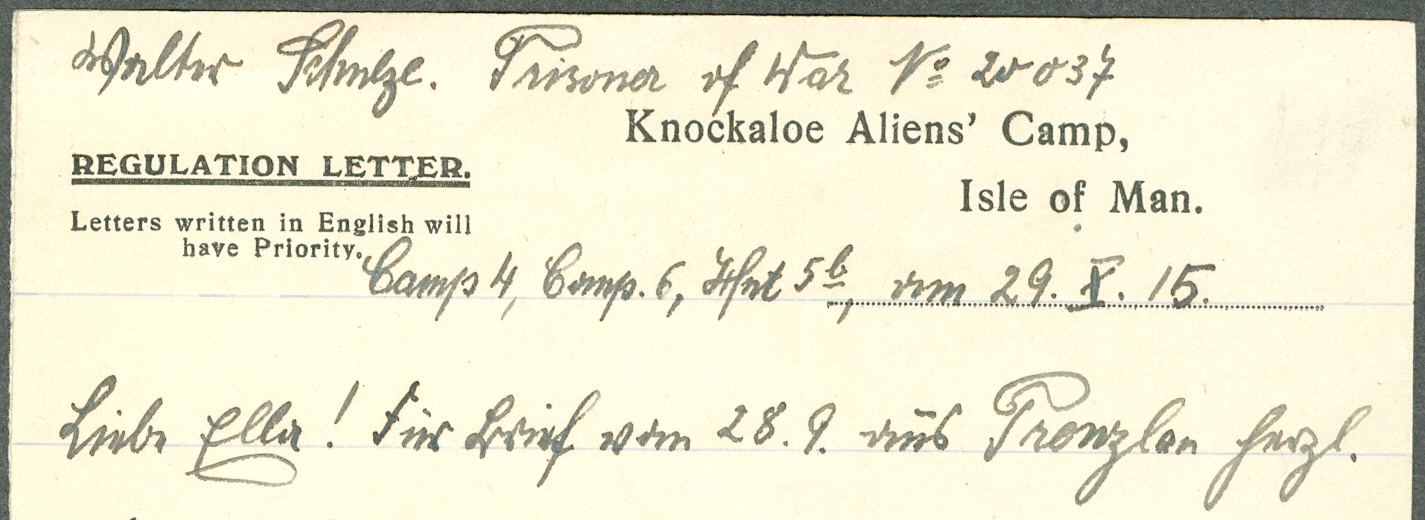 Walter Schulze. Prisoner of War No 20037
Knockaloe Aliens' Camp,
REGULATION LETTER.
Isle of Man.
Letters written in English will
have Priority.
Camp 4, Comp. 6, Hut 5b, am 29. X. 15.
Liebe Ella! Für Brief vom 28. 9. aus herzl.